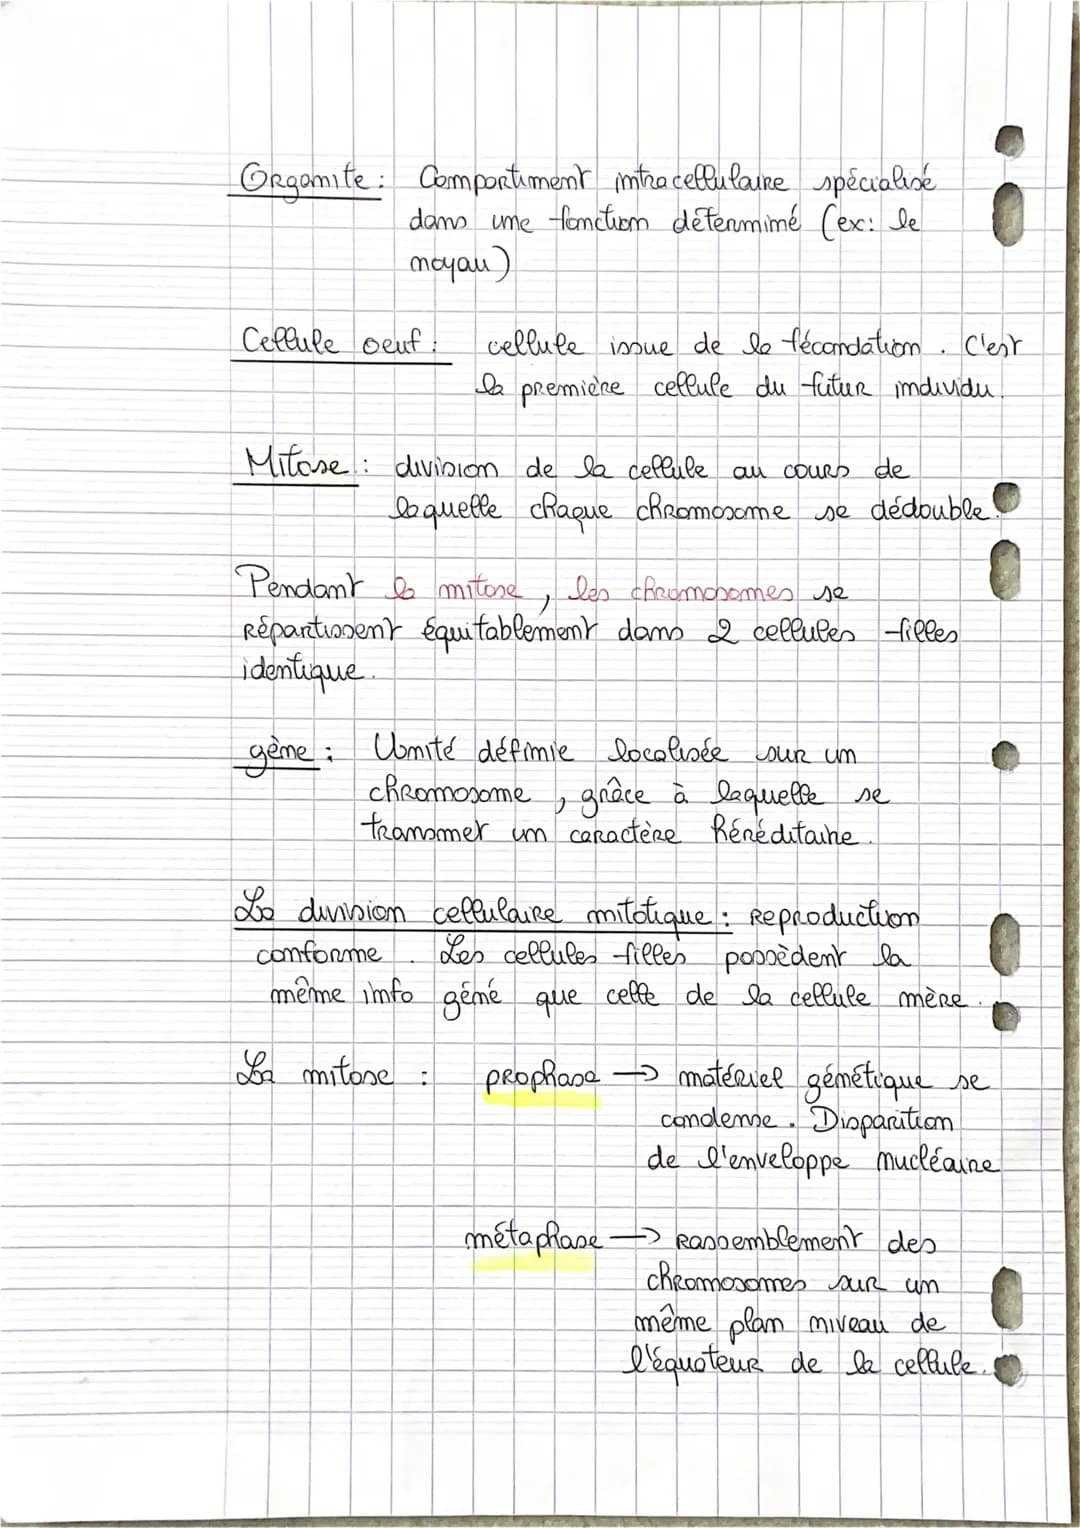 Organite : Compartiment intracellulaire spécialisé
dans une fonction déterminé (ex: le
noyau)
Cellule oeuf : cellule issue de la fécondation. C'est
la première cellule du futur individu.
Mitose : division de la cellule au cours de
laquelle chaque chromosome se dédouble.
Pendant la mitose, les chromosomes se
répartissent équitablement dans 2 cellules filles
identique.
gène : Unité définie localisée sur un
chromosome, grâce à laquelle se
transmet un caractère héréditaire.
La division cellulaire mitotique : Reproduction
conforme. Les cellules filles possèdent la
même info géné que celle de la cellule mère.
La mitose : prophase → matériel génétique se
condense. Disparition
de l'enveloppe nucléaire
métaphase → Rassemblement des
chromosomes sur un
même plan niveau de
l'équateur de la cellule.